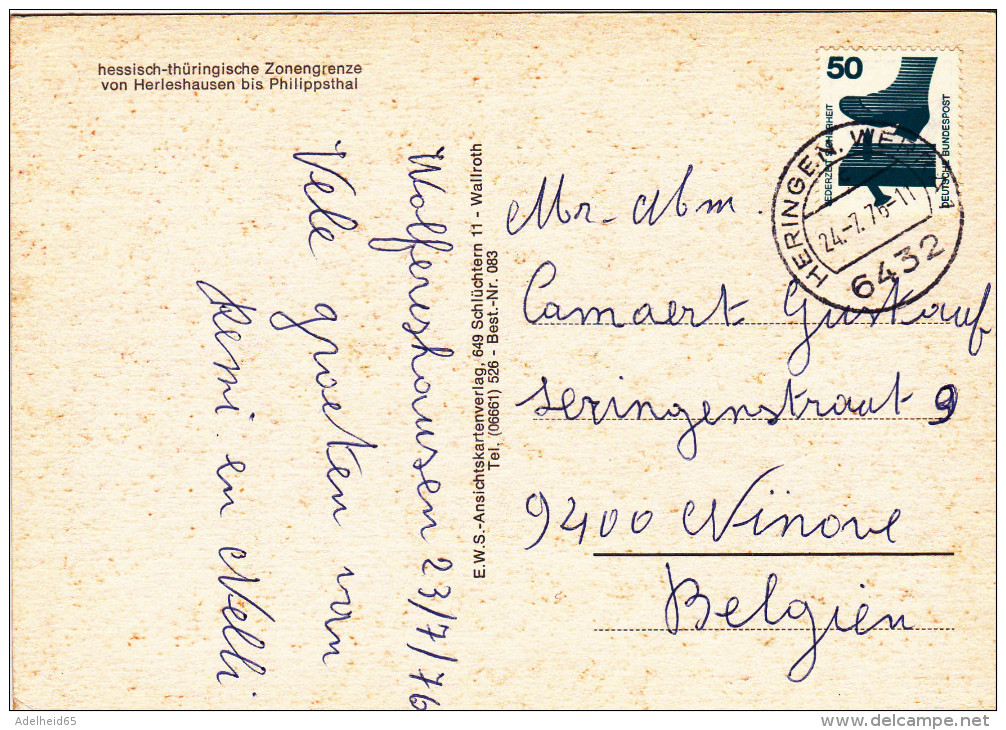 hessisch-thüringische Zonengrenze
von Herleshausen bis Philippsthal
Wolfershausen 23/7/76
Vele groeten van
Remi en Nelli
E.W.S.-Ansichtskartenverlag, 649 Schlüchtern 11 - Wallroth
Tel. (06661) 526 - Best.-Nr. 083
50
JEDERZEIT SICHERHEIT
DEUTSCHE BUNDESPOST
HERINGEN
24.-7.76-11
6432
Mr
Camaert Gustaaf
Seringenstraat 9
9400 Ninove
Belgien
Adelheid65
www.delcampe.net